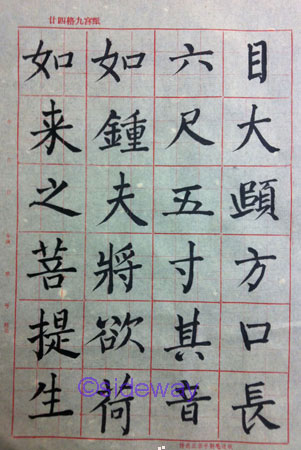 廿四格九宮
目大頤方口長
六尺五寸其音
如鍾夫將欲荷
如来之菩提生
©sideway